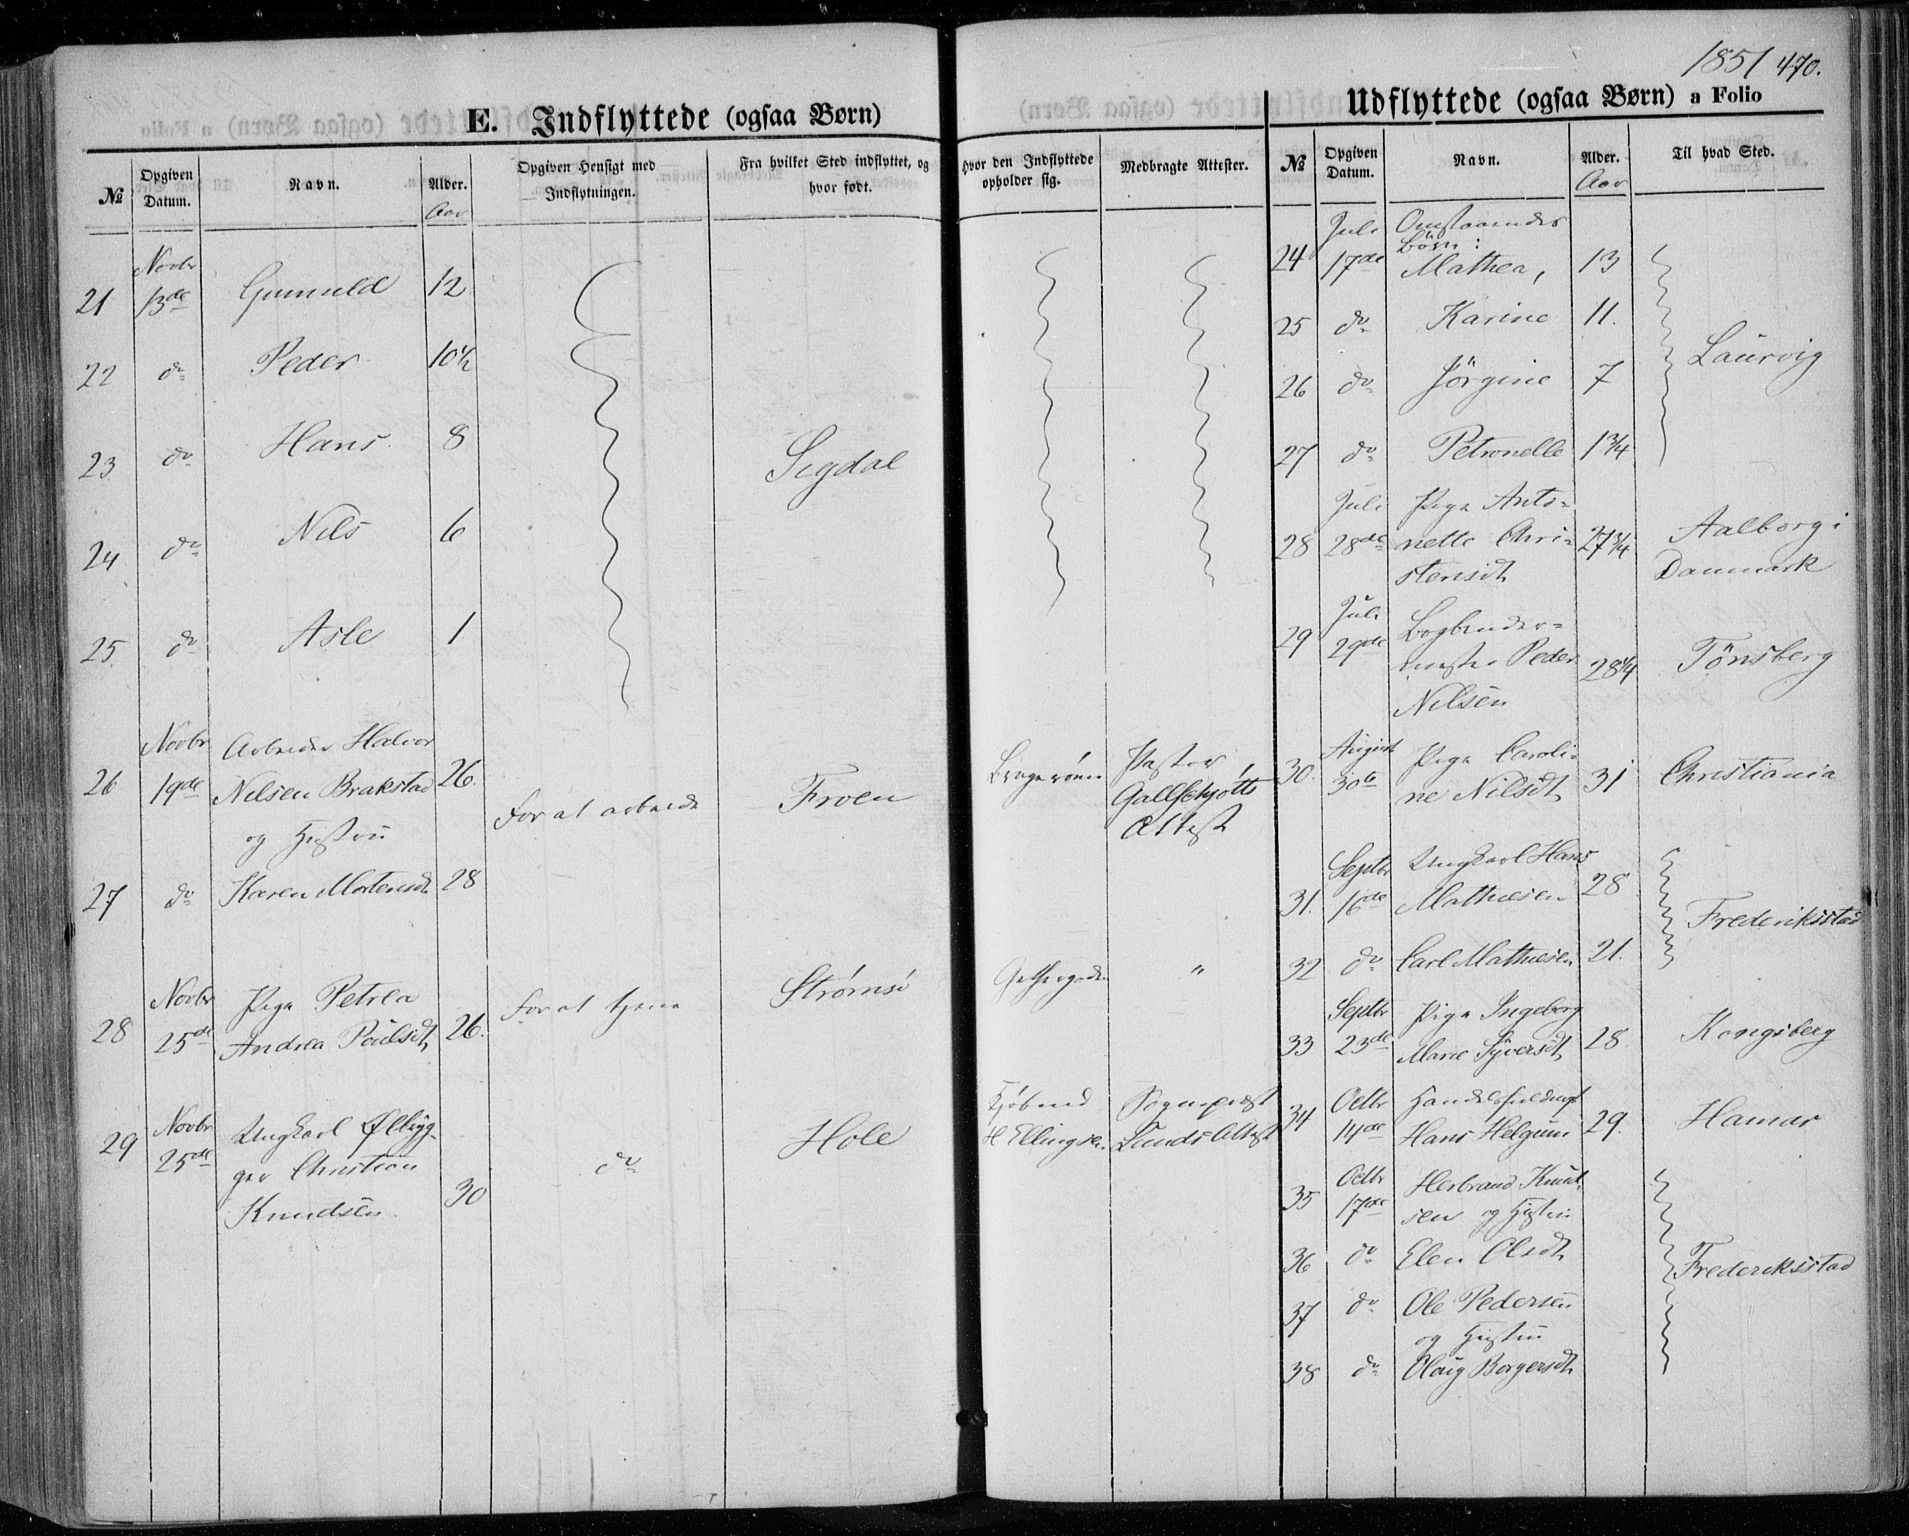 1851 470.
E. Indflyttede (ogsaa Børn)
№ Opgiven Datum. Navn. Alder. Opgiven Hensigt med Indflytningen. Fra hvilket Sted indflyttet, og hvor født. Hvor den Indflyttede opholder sig. Medbragte Attester.
Aar
21 Novbr 13de Gunnuld 12
22 do Peder 10½
23 do Hans 8 Sigdal
24 do Nils 6
25 do Asle 1
26 Novbr 19de Arbeider Halvor
Nilsen Brakstad 26. For at arbeide Froen Bragerøen Pastor
og Hustru Gallschjøtts
Attest
27 do Karen Mortensdt 28
28 Novbr 25de Pige Petrea
Andrea Paulsdt 26. For at tjene Strømsö "
29 Novbr 25de Ungkarl Ølbryg-
ger Christian do Hole Kjöbmd Sognepræst
Knudsen 30 H Ellingsen Lunds Attest
Udflyttede (ogsaa Børn) a Folio
№ Opgiven Datum. Navn. Alder. Til hvad Sted.
Aar
Juli Omstaaendes
Börn:
24 17de Mathea, 13
25 do Karine 11.
26 do Jörgine 7 Laurvig
27 do Petronelle 1¾
28 Juli 28de Pige Anto-
nette Chri- 27¾ Aalborg i
stensdt Danmark
29 Juli 29de Bogbinder-
mester Peder 28¼ Tönsberg
Nilsen
30. August 30te Pige Caroli-
ne Nilsdt 31 Christiania
31. Septbr 16de Ungkarl Hans
Mathiesen 28 Frederiksstad
32 do Carl Mathiesen 21.
33 Septbr 23de Pige Ingeborg
Marie Syversdt 28. Kongsberg
34 Octbr 14de Handelsfuldmgt
Hans Helgum 29. Hamar
35 Octbr 17de Herbrand Knud-
sen og Hustru
36 do Elen Olsdt Frederiksstad
37 do Ole Pedersen
og Hustru
38 do Olaug Borgersdt